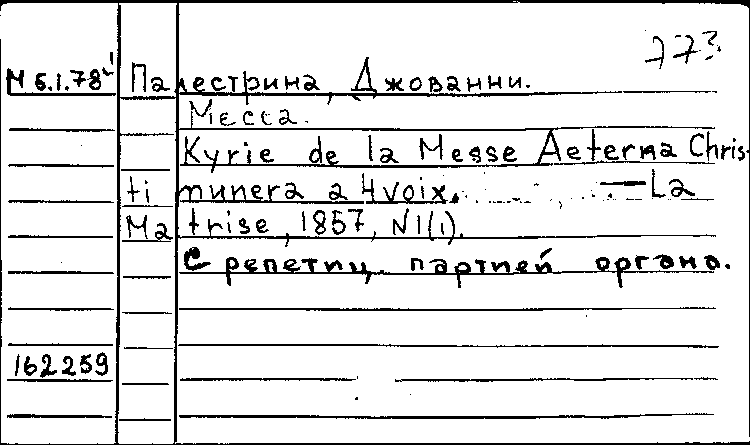 773
М 6.1.78 Палестрина, Джованни.
Месса.
Kyrie de la Messe Aeterna Chris-
ti munera a 4 voix. — La
Maitrise, 1857, N1(1).
С репетиц. партией органа.
162259